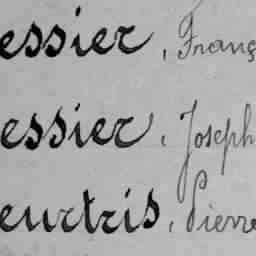 essier, Franç
essier, Joseph
eurtris, Pierre